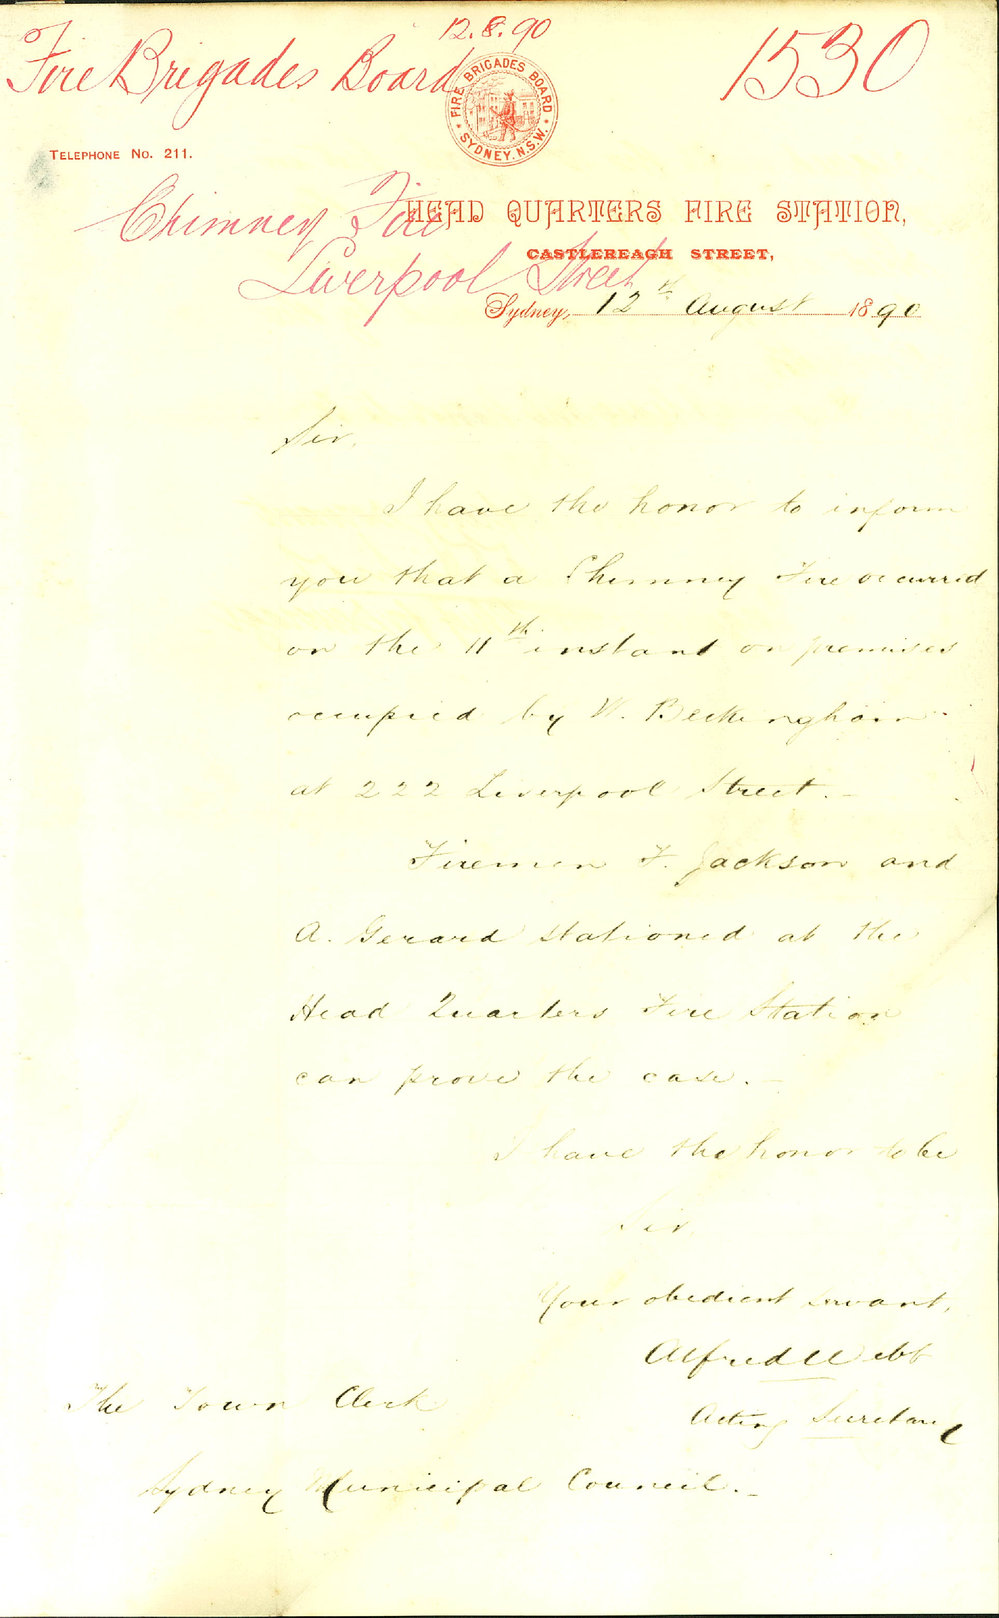 12.8.90
Fire Brigades Board
1530
FIRE BRIGADES BOARD
SYDNEY. N.S.W.
TELEPHONE No. 211.
Chimney Fire
HEAD QUARTERS FIRE STATION,
CASTLEREAGH STREET,
Liverpool Street
Sydney, 12th August 1890
Sir,
I have the honor to inform
you that a Chimney Fire occurred
on the 11th instant on premises
occupied by W. Beckingham
at 222 Liverpool Street.-
Firemen F. Jackson and
A. Gerard stationed at the
Head Quarters Fire Station
can prove the case.-
I have the honor to be
Sir,
Your obedient servant,
Alfred Webb
Acting Secretary
The Town Clerk
Sydney Municipal Council.-